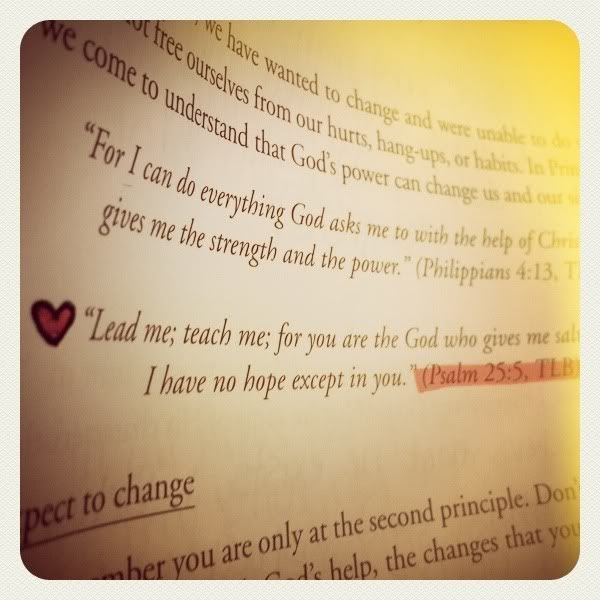 we have wanted to change and were unable to do
not free ourselves from our hurts, hang-ups, or habits. In
we come to understand that God's power can change us and our
“For I can do everything God asks me to with the help of
gives me the strength and the power.” (Philippians 4:13,
“Lead me; teach me; for you are the God who gives me
I have no hope except in you.” (Psalm 25:5, TLB)
pect to change
mber you are only at the second principle. Don't
God's help, the changes that you